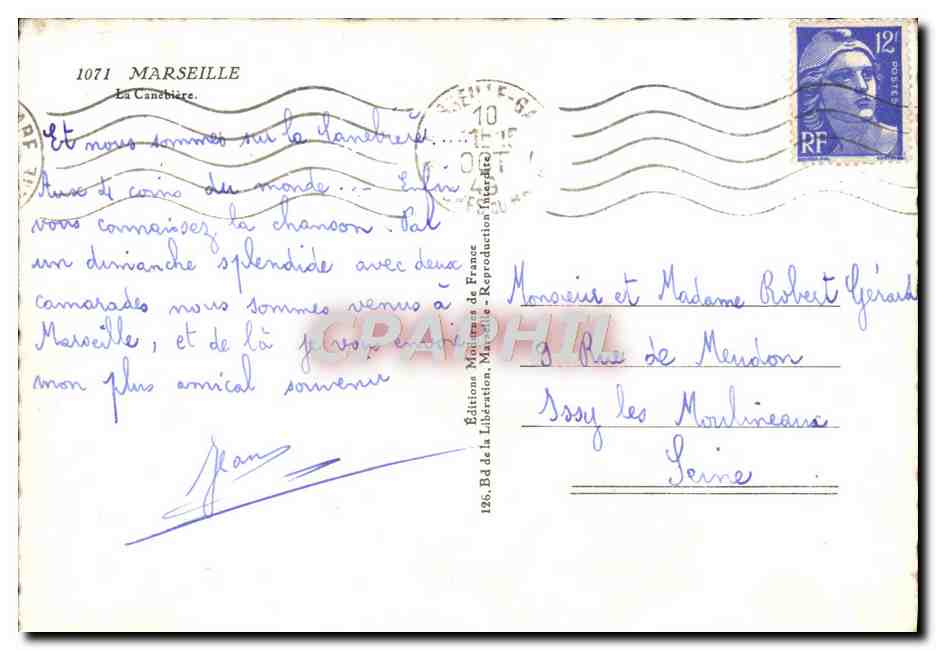 1071 MARSEILLE
La Canebière.
Et nous sommes sur la Canebière...
Aux 4 coins du monde... Enfin
vous connaissez la chanson. Par
un dimanche splendide avec deux
camarades nous sommes venus à
Marseille, et de là je vous envoie
mon plus amical souvenir
Jean
Éditions Modernes de France
126, Bd de la Libération, Marseille - Reproduction Interdite
10
OCT
12F
POSTES
RF
Monsieur et Madame Robert Gérard
9 Rue de Meudon
Issy les Moulineaux
Seine
CPAPHIL